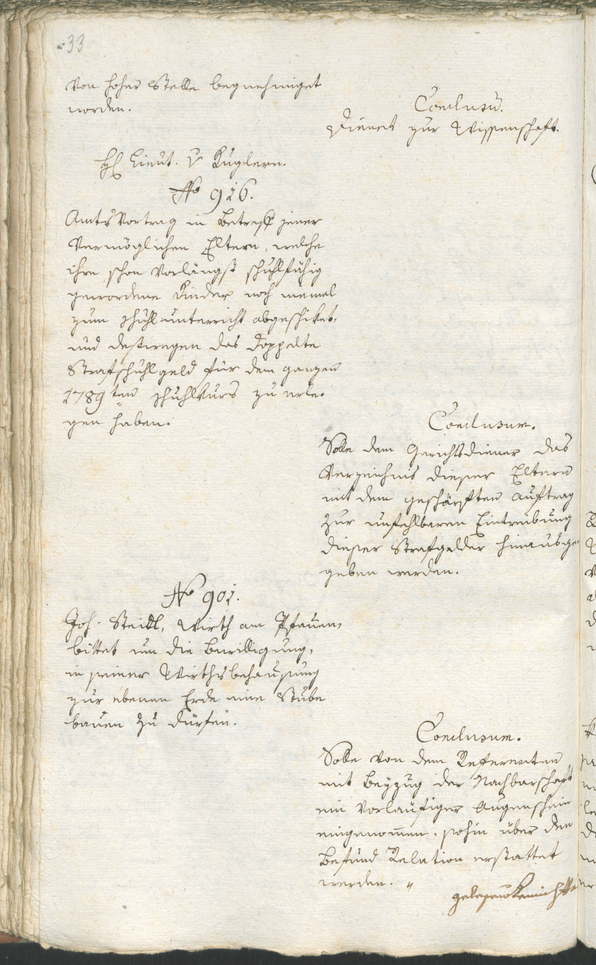 33
Von hoher Stelle begnehmiget
worden.
Conclusū.
Dienet zur Wissenschaft.
Lieut. v Kuglern.
No 916.
Amts Vortrag in Betreff jener
Vermöglichen Eltern, welche
ihre schon Vorlängst schuhlfähig
gewordene Kinder noch niemal
zum schuhlunterricht abgeschiket,
und deßwegen das doppelte
Strafschuhlgeld für dem ganzen
1789ten schuhlkurs zu erle-
gen haben.
Conclusum.
Solle dem Gerichtsdiener das
Verzeichnis dieser Eltern
mit dem geschärften Auftrag
zur unfehlbaren Eintreibung
dieser Strafgelder hinausge-
geben werden.
No 901.
Joh. Steidl, Wirth am Pfauen,
bittet um die Bewilligung,
in seiner Wirthsbehausung
zur ebenen Erde eine Stube
bauen zu dürfen.
Conclusum.
Solle von dem Referenten
mit Beyzug der Nachbarschaft
ein Vorläufiger Augenschein
eingenom̅en, sohin über den
Befund Relation erstattet
werden.